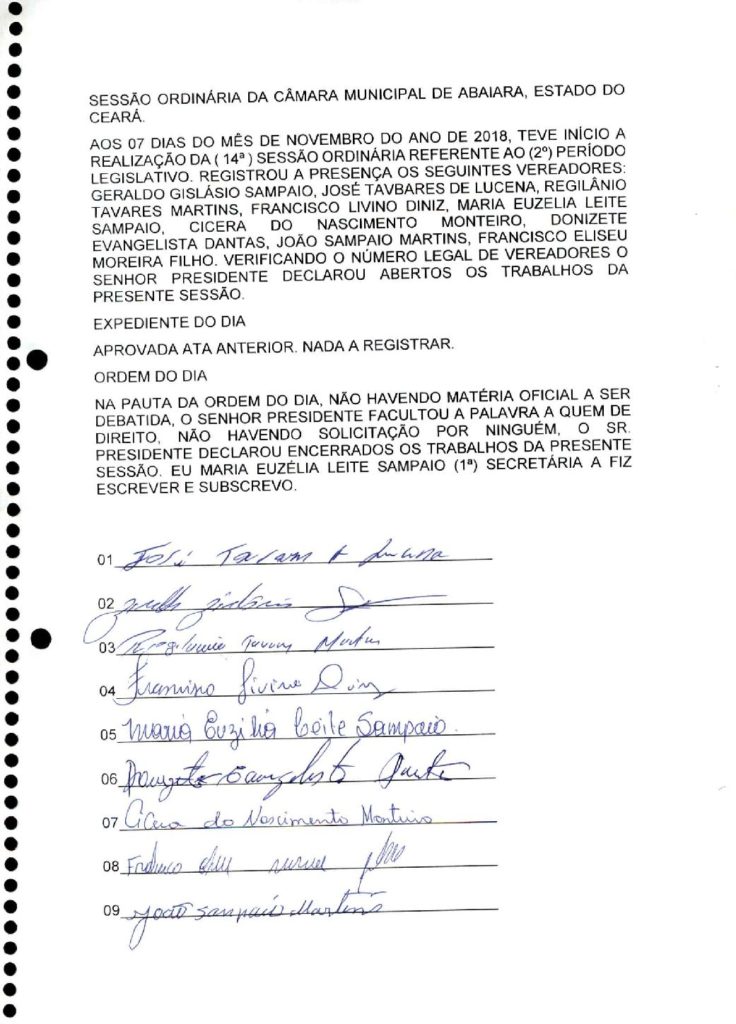 SESSÃO ORDINÁRIA DA CÂMARA MUNICIPAL DE ABAIARA, ESTADO DO
CEARÁ.
AOS 07 DIAS DO MÊS DE NOVEMBRO DO ANO DE 2018, TEVE INÍCIO A
REALIZAÇÃO DA ( 14ª ) SESSÃO ORDINÁRIA REFERENTE AO (2º) PERÍODO
LEGISLATIVO. REGISTROU A PRESENÇA OS SEGUINTES VEREADORES:
GERALDO GISLÁSIO SAMPAIO, JOSÉ TAVBARES DE LUCENA, REGILÂNIO
TAVARES MARTINS, FRANCISCO LIVINO DINIZ, MARIA EUZELIA LEITE
SAMPAIO, CICERA DO NASCIMENTO MONTEIRO, DONIZETE
EVANGELISTA DANTAS, JOÃO SAMPAIO MARTINS, FRANCISCO ELISEU
MOREIRA FILHO. VERIFICANDO O NÚMERO LEGAL DE VEREADORES O
SENHOR PRESIDENTE DECLAROU ABERTOS OS TRABALHOS DA
PRESENTE SESSÃO.
EXPEDIENTE DO DIA
APROVADA ATA ANTERIOR. NADA A REGISTRAR.
ORDEM DO DIA
NA PAUTA DA ORDEM DO DIA, NÃO HAVENDO MATÉRIA OFICIAL A SER
DEBATIDA, O SENHOR PRESIDENTE FACULTOU A PALAVRA A QUEM DE
DIREITO, NÃO HAVENDO SOLICITAÇÃO POR NINGUÉM, O SR.
PRESIDENTE DECLAROU ENCERRADOS OS TRABALHOS DA PRESENTE
SESSÃO. EU MARIA EUZÉLIA LEITE SAMPAIO (1ª) SECRETÁRIA A FIZ
ESCREVER E SUBSCREVO.
01 José
02
03 Martins
04 Francisco Livino Diniz
05 Maria Euzélia Leite Sampaio
06 Evangelista
07 Cicera do Nascimento Monteiro
08
09 João Sampaio Martins